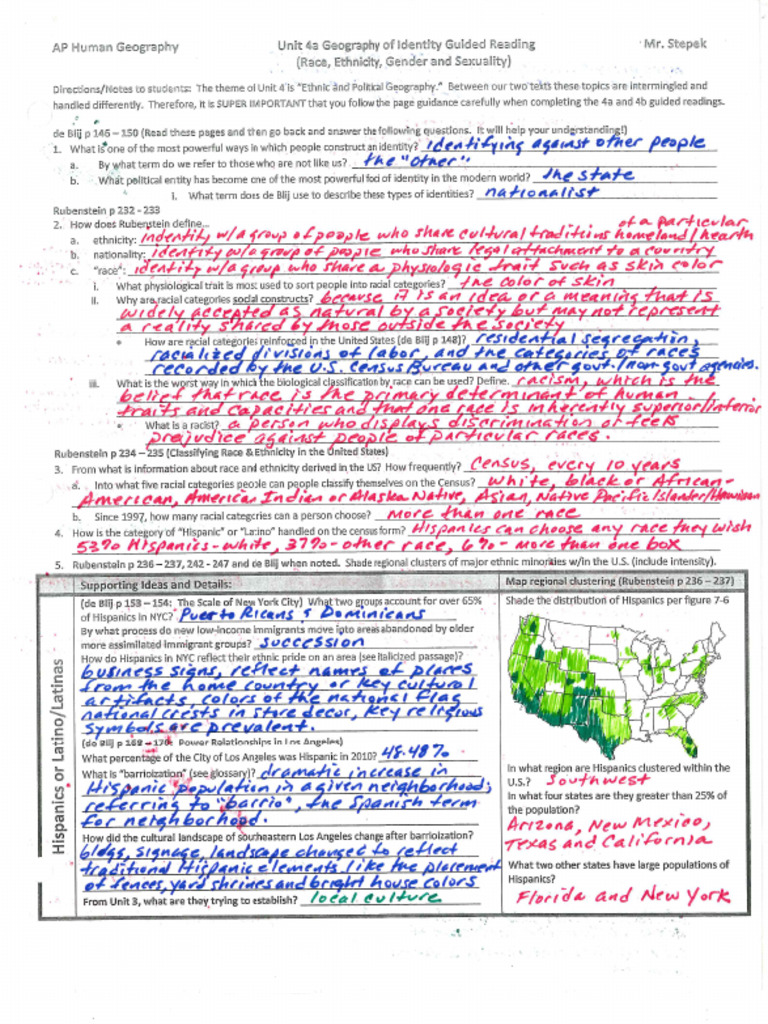 AP Human Geography Unit 4a Geography of Identity Guided Reading Mr. Stepek
(Race, Ethnicity, Gender and Sexuality)
Directions/Notes to students: The theme of Unit 4 is "Ethnic and Political Geography." Between our two texts these topics are intermingled and
handled differently. Therefore, it is SUPER IMPORTANT that you follow the page guidance carefully when completing the 4a and 4b guided readings.
de Blij p 146 – 150 (Read these pages and then go back and answer the following questions. It will help your understanding!)
1. What is one of the most powerful ways in which people construct an identity? identifying against other people
a. By what term do we refer to those who are not like us? the "other"
b. What political entity has become one of the most powerful foci of identity in the modern world? the state
i. What term does de Blij use to describe these types of identities? nationalist
Rubenstein p 232 - 233
2. How does Rubenstein define... of a particular
a. ethnicity: indentity w/a group of people who share cultural traditions homeland/hearth
b. nationality: identity w/a group of people who share legal attachment to a country
c. "race": identity w/a group who share a physiologic trait such as skin color
i. What physiological trait is most used to sort people into racial categories? the color of skin
ii. Why are racial categories social constructs? because it is an idea or a meaning that is
widely accepted as natural by a society but may not represent
a reality shared by those outside the society
• How are racial categories reinforced in the United States (de Blij p 148)? residential segregation,
racialized divisions of labor, and the categories of races
recorded by the U.S. Census Bureau and other govt./non-govt agencies.
iii. What is the worst way in which the biological classification by race can be used? Define. racism, which is the
belief that race is the primary determinant of human
traits and capacities and that one race is inherently superior/inferior
• What is a racist? a person who displays discrimination or feels
prejudice against people of particular races.
Rubenstein p 234 – 235 (Classifying Race & Ethnicity in the United States)
3. From what is information about race and ethnicity derived in the US? How frequently? Census, every 10 years
a. Into what five racial categories people can people classify themselves on the Census? White, black or African-
American, American Indian or Alaska Native, Asian, Native Pacific Islander/Hawaiian
b. Since 1997, how many racial categories can a person choose? more than one race
4. How is the category of "Hispanic" or "Latino" handled on the census form? Hispanics can choose any race they wish
53% Hispanics-white, 37%-other race, 6%- more than one box
5. Rubenstein p 236 – 237, 242 - 247 and de Blij when noted. Shade regional clusters of major ethnic minorities w/in the U.S. (include intensity).
Supporting Ideas and Details: Map regional clustering (Rubenstein p 236 – 237)
Hispanics or Latino/Latinas
(de Blij p 153 – 154: The Scale of New York City) What two groups account for over 65%
of Hispanics in NYC? Puerto Ricans, Dominicans
By what process do new low-income immigrants move into areas abandoned by older
more assimilated immigrant groups? succession
How do Hispanics in NYC reflect their ethnic pride on an area (see italicized passage)?
business signs, reflect names of places
from the home country or key cultural
artifacts, colors of the national flag
national crests in store decor, key religious
symbols are prevalent.
(de Blij p 168 – 170: Power Relationships in Los Angeles)
What percentage of the City of Los Angeles was Hispanic in 2010? 48.48%
What is "barrioization" (see glossary)? dramatic increase in
Hispanic population in a given neighborhood;
referring to "barrio", the Spanish term
for neighborhood.
How did the cultural landscape of southeastern Los Angeles change after barrioization?
bldgs, signage, landscape changed to reflect
traditional Hispanic elements, like the placement
of fences, yard shrines and bright house colors
From Unit 3, what are they trying to establish? local culture
Shade the distribution of Hispanics per figure 7-6
In what region are Hispanics clustered within the
U.S.? Southwest
In what four states are they greater than 25% of
the population?
Arizona, New Mexico,
Texas and California
What two other states have large populations of
Hispanics?
Florida and New York